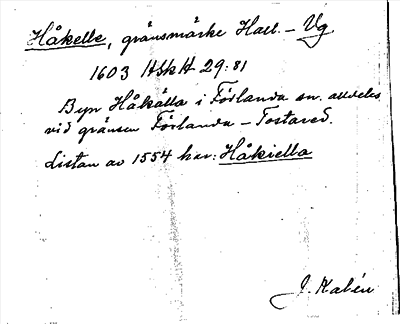 Håkelle, gränsmärke Hall. – Vg
1603 HSkH 29:81
Byn Håkälla i Förlanda sn. alldeles
vid gränsen Förlanda – Tostared.
Listan av 1554 har: Håkiella
J. Kalén